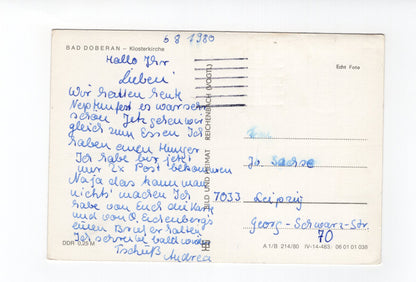 6 8 1980
BAD DOBERAN – Klosterkirche
Hallo Ihr
Lieben!
Wir hatten heut
Neptunfest es war sehr
schön Jetzt gehen wir
gleich zum Essen Ich
haben einen Hunger
Ich habe bis jetzt
nur 2x Post bekommen
Naja das kann man
nichts machen Ich
habe von Euch die Karte
und von O.
einen Brief erhalten
Ich schreibe bald wieder
Tschüß Andrea
DDR 0,25 M
BILD UND HEIMAT REICHENBACH (VOGTL)
Echt Foto
Fam.
Jo. Sachse
7033 Leipzig
Georg-Schwarz-Str.
70
A 1/B 214/80 IV-14-483 06 01 01 038